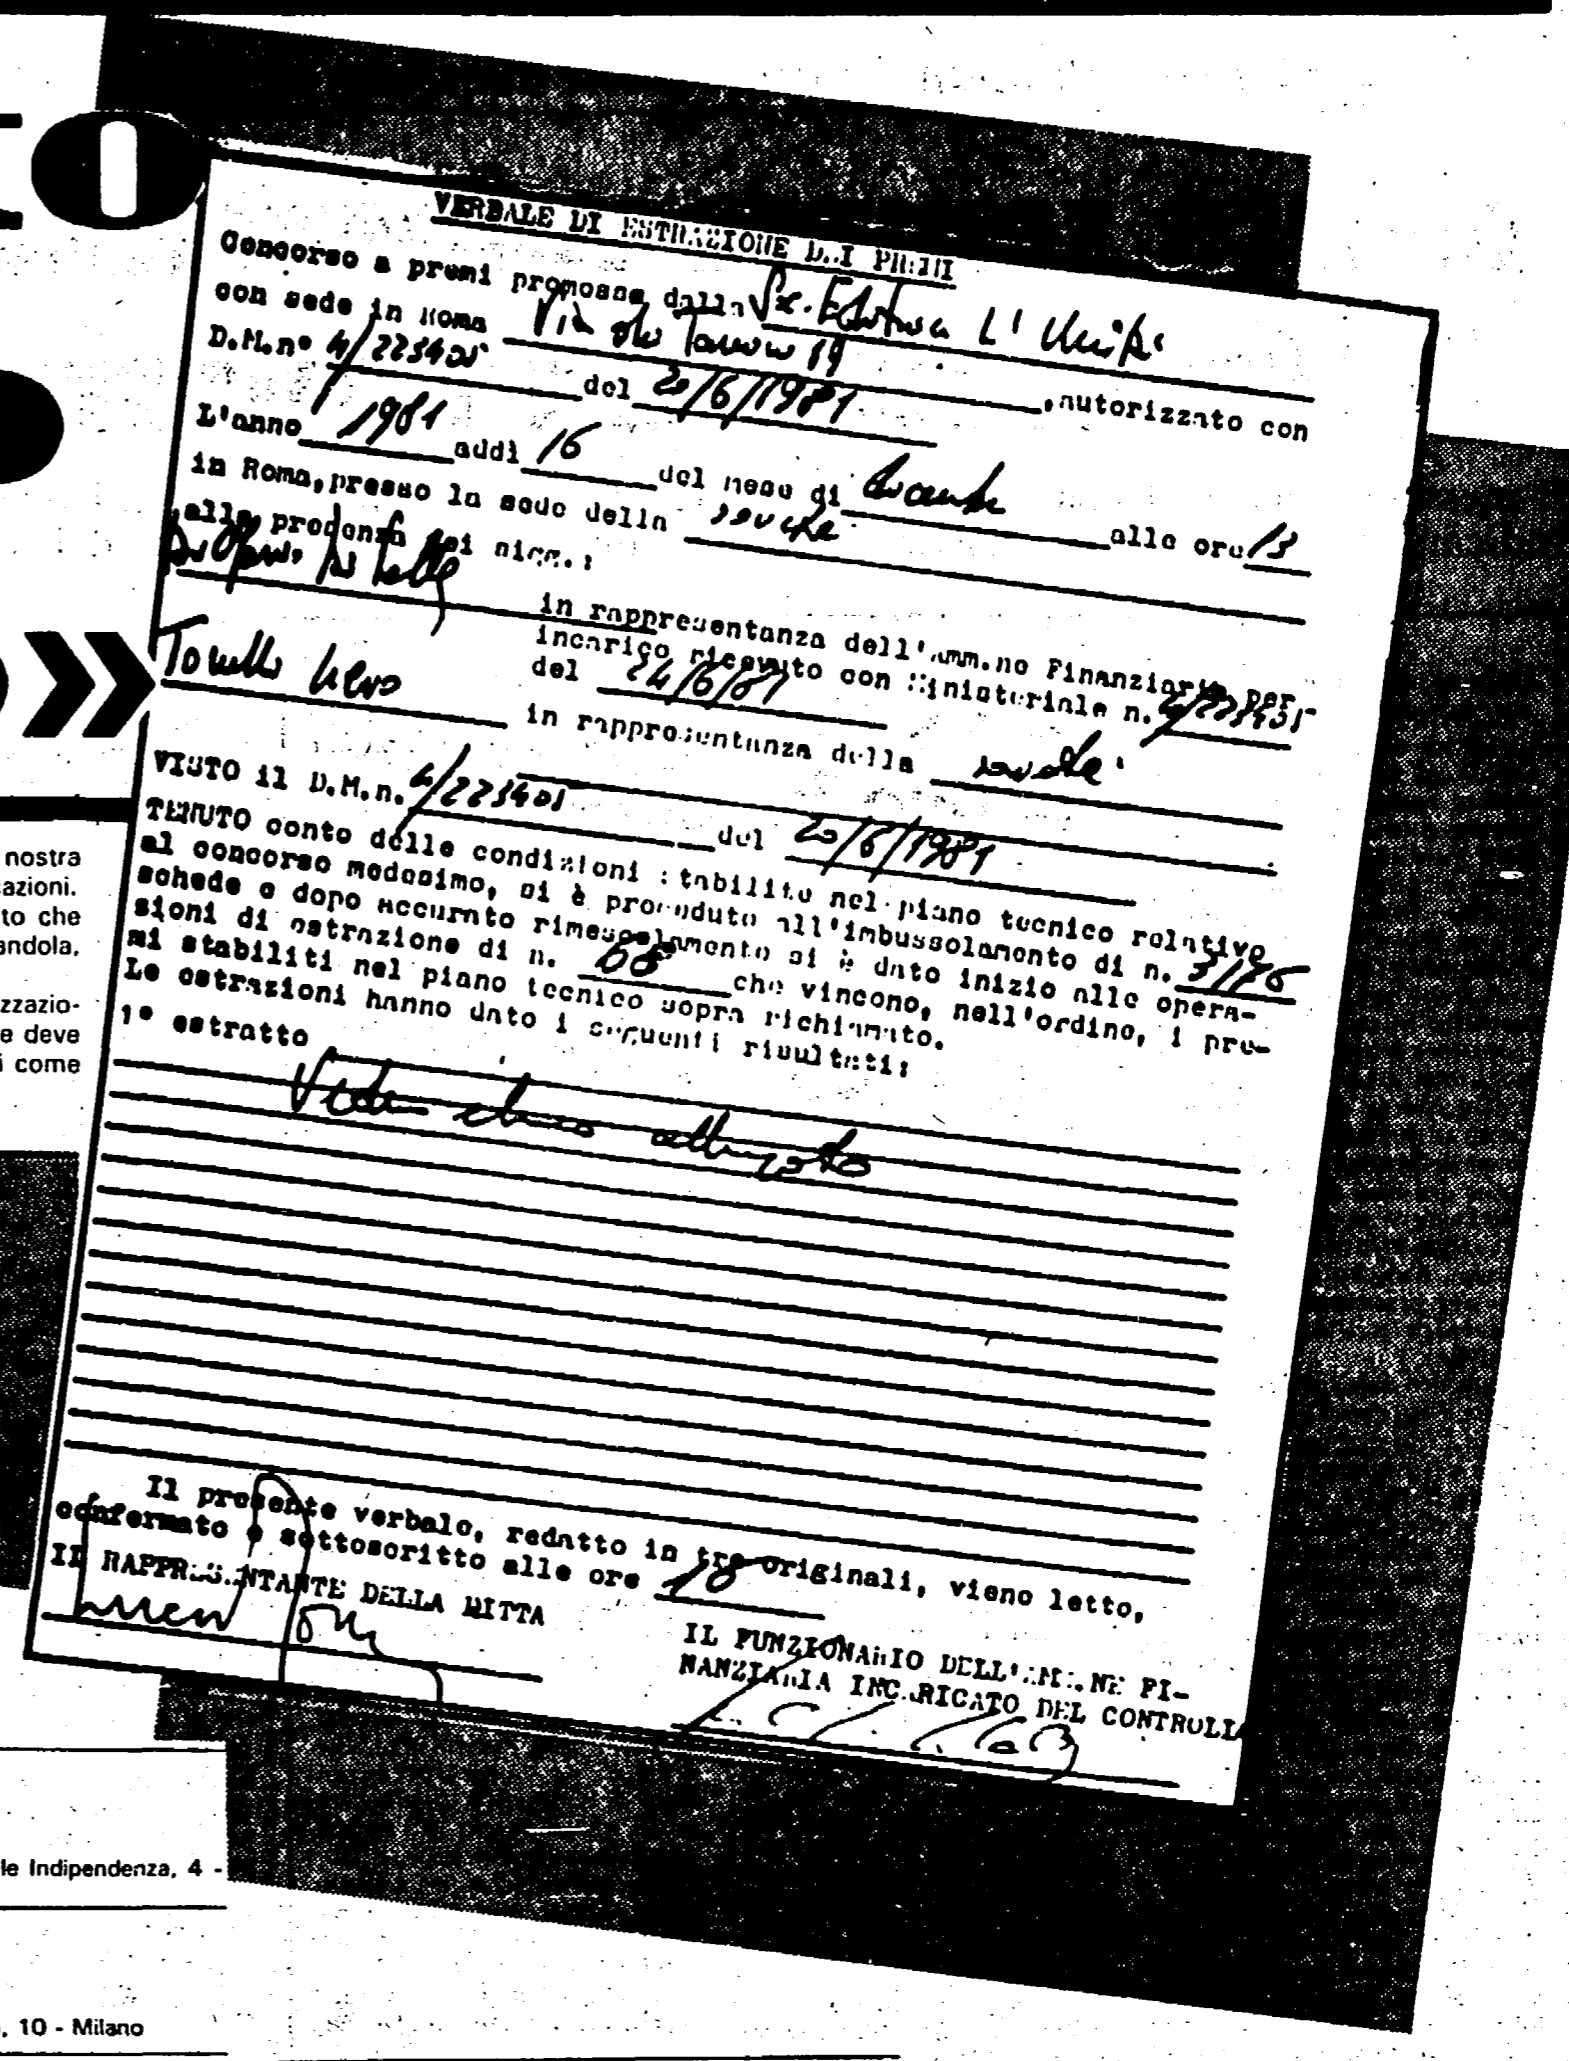 VERBALE DI ESTRAZIONE DEI PREMI
Concorso a premi promosso dalla Soc. Editrice L'Unità
con sede in Roma Via dei Taurini 19, autorizzato con
D.M.n° 4/223401 del 20/6/1981
L'anno 1981 addì 16 del mese di alle ore 13
in Roma, presso la sede della società
alla presenza dei sigg.:
in rappresentanza dell'Amm.ne Finanziaria per
incarico ricevuto con Ministeriale n. 4/223401
del 24/6/81
Tonelli in rappresentanza della società
VISTO il D.M.n. 4/223401 del 20/6/1981
TENUTO conto delle condizioni stabilite nel piano tecnico relativo
al concorso medesimo, si è proceduto all'imbussolamento di n.
schede e dopo accurato rimescolamento si è dato inizio alle opera-
sioni di estrazione di n. che vincono, nell'ordine, i pre-
mi stabiliti nel piano tecnico sopra richiamato.
Le estrazioni hanno dato i seguenti risultati:
1° estratto
Vedi elenco allegato
Il presente verbale, redatto in tre originali, viene letto,
confermato e sottoscritto alle ore
IL RAPPRESENTANTE DELLA DITTA
IL FUNZIONARIO DELL'AMM.NE FI-
NANZIARIA INCARICATO DEL CONTROLL
nostra
azioni.
to che
andola.
zzazio-
e deve
i come
le Indipendenza, 4 -
, 10 - Milano